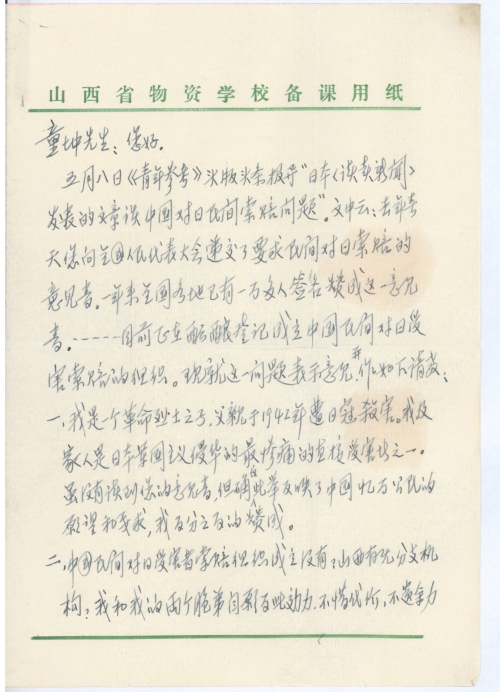 山西省物资学校备课用纸
童坤先生:您好。
五月八日《青年参考》头版头条报导"日本《读卖新闻》
发表的文章谈中国对日民间索赔问题"。文中云:去年春
天您向全国人民代表大会递交了要求民间对日索赔的
意见书。一年来全国各地已有一万多人签名赞成这一意见
书。……目前正在酝酿登记成立中国民间对日受
害索赔的组织。现就这一问题表示意见,并作如下请教:
一、我是一个革命烈士之子,父亲于1942年遭日寇杀害。我及
家人是日本军国主义侵华的最惨痛的直接受害者之一。
虽没有读到您的意见书,但确此举反映了中国亿万公民的
愿望和要求,我百分之百的赞成。
二、中国民间对日受害者索赔组织成立没有?山西有无分支机
构?我和我的两个胞弟自愿为此效力,不惜代价,不遗余力